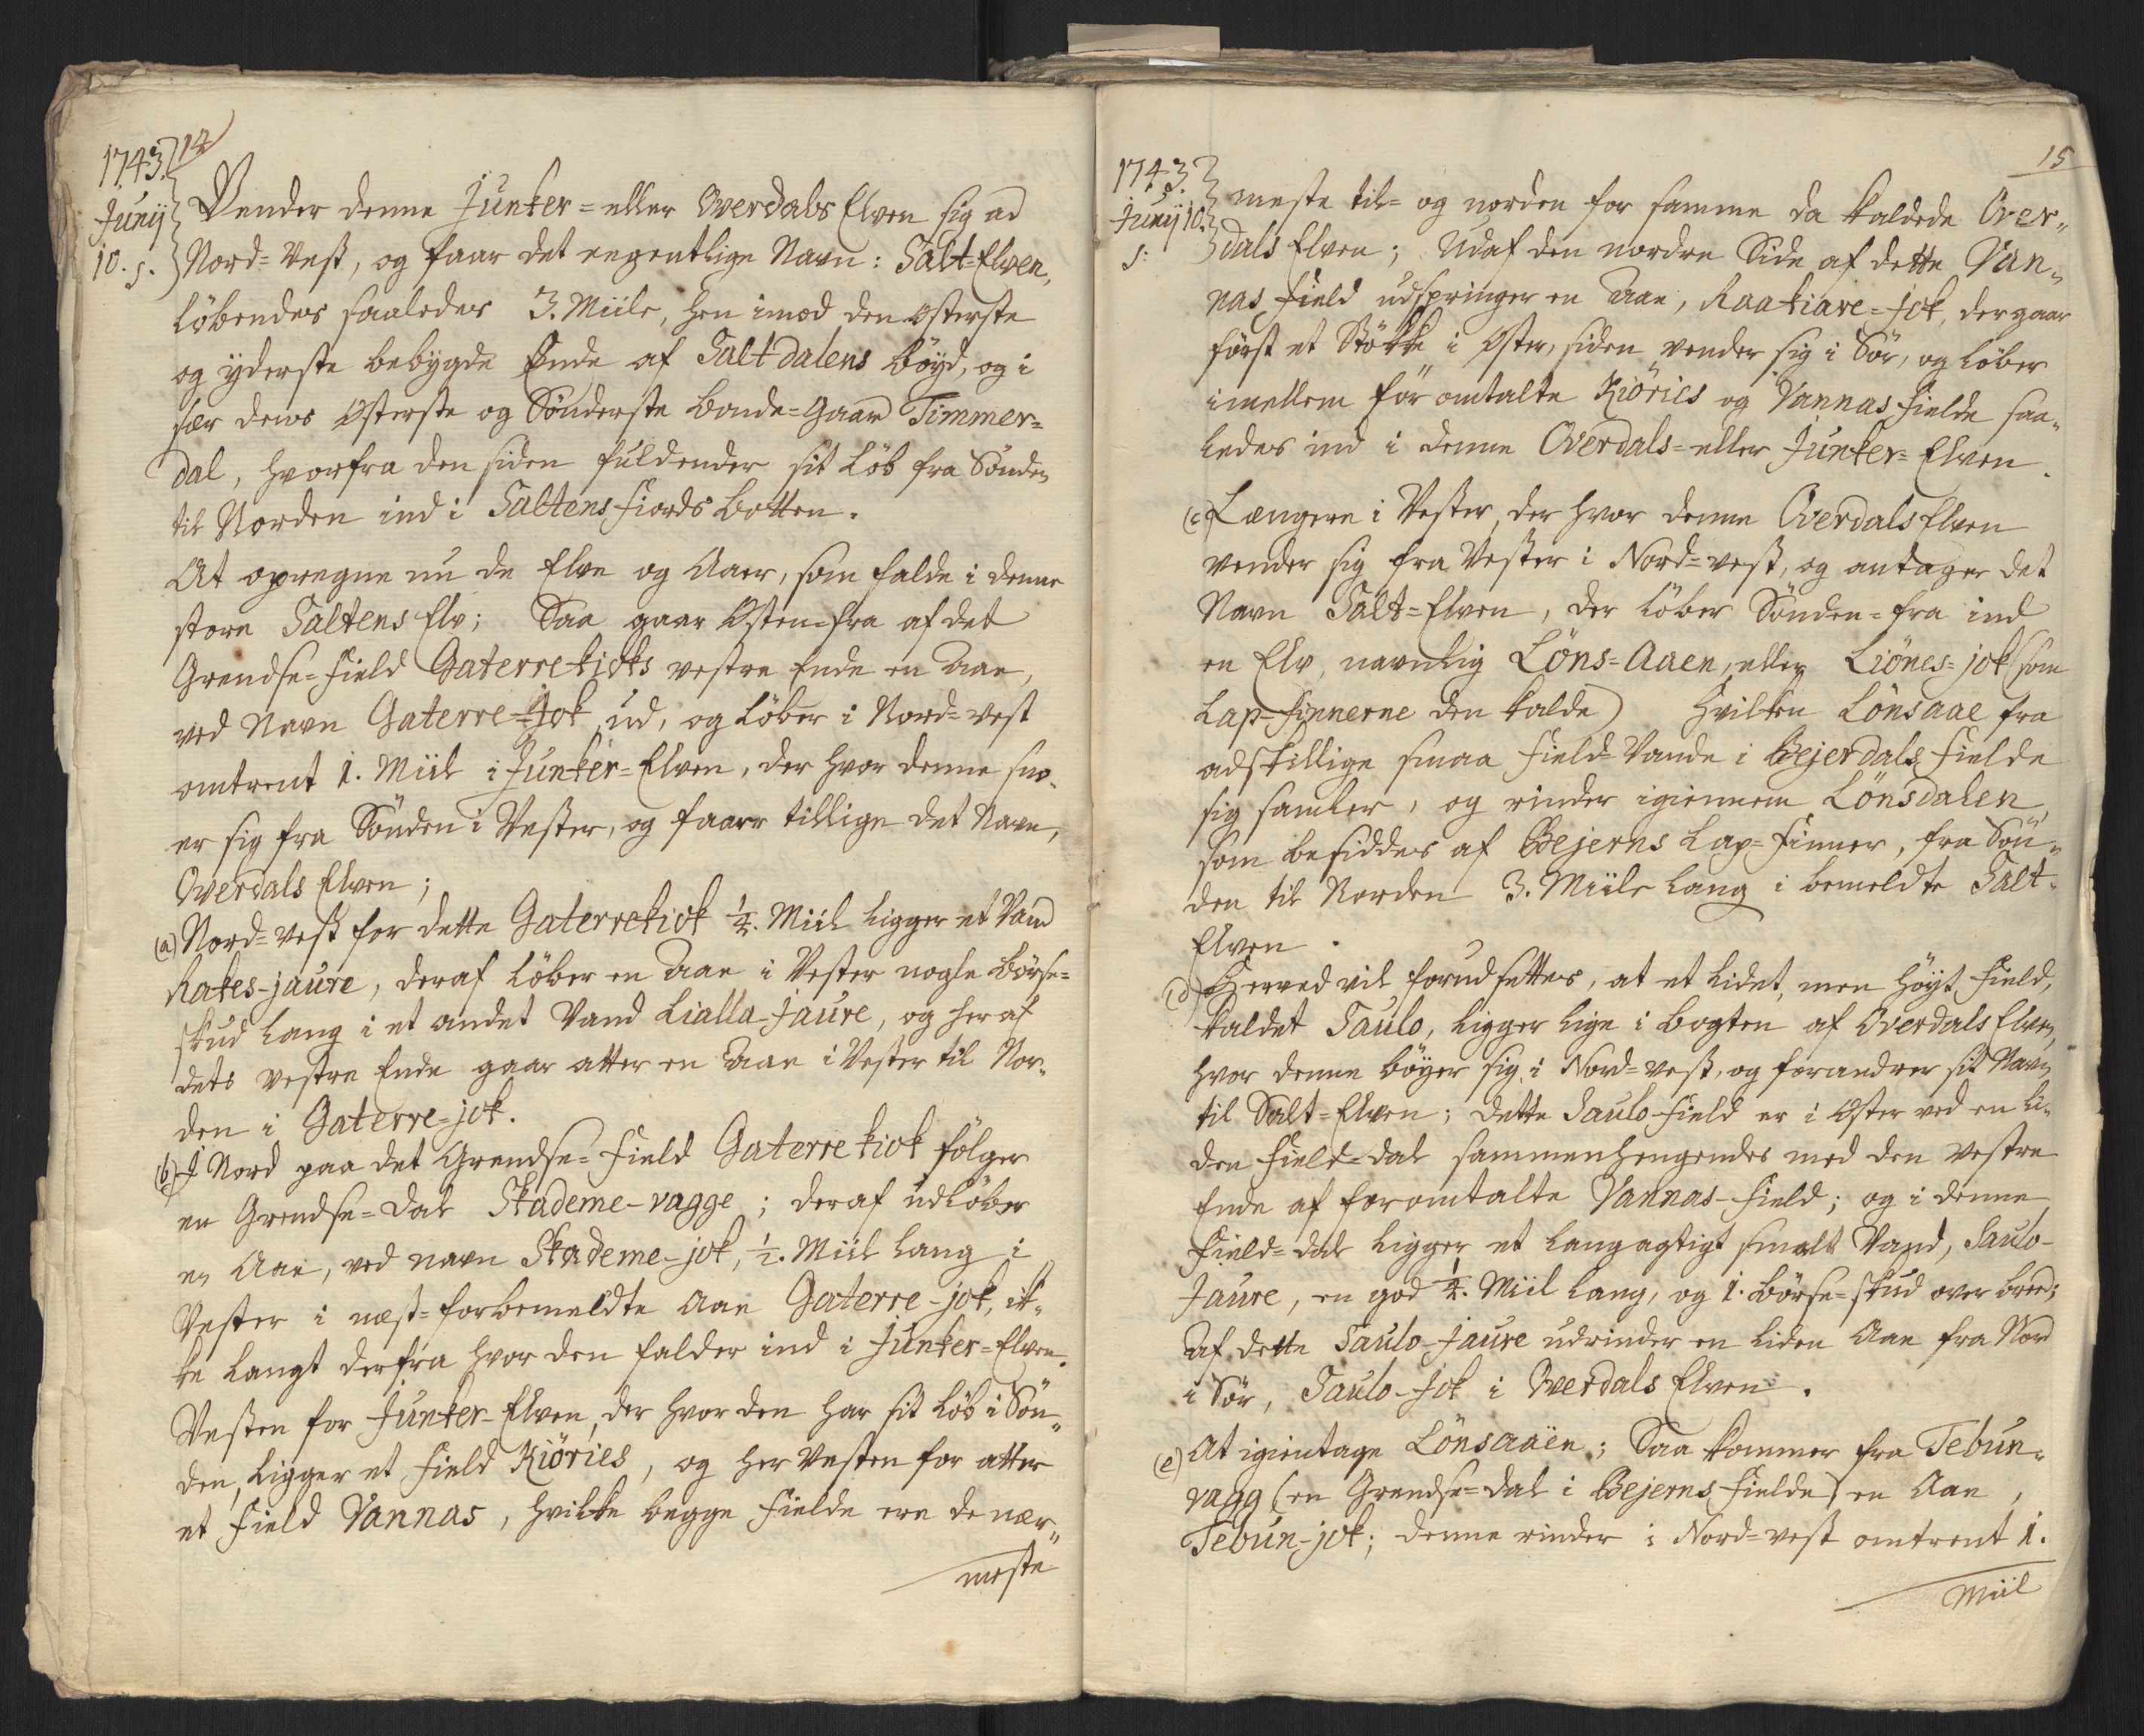 1743.
Junij
10. s.
14
Vender denne Junker= eller Overdals Elven sig ad
Nord=Vest, og faar det eegentlige Navn: Salt=Elven,
löbendes saaledes 3. Miile, hen imod den Osterste
og yderste bebygde Ende af Saltdalensböyd, og i
sær dens Osterste og Sönderste bonde=Gaar Timmer=
dal, hvorfra den siden fuldender sit Löb fra Sönden
til Norden ind i Saltens Fiords Botten.
At opregne nu de Elve og Aaer, som falde i denne
store Saltens Elv; Saa gaar Osten=fra af det
Grendse=Field Gaterrekioks vestre Ende en Aae,
ved Navn Gaterre=Jok ud, og löber i Nord=vest
omtrent 1. Miil i Junker=Elven, der hvor denne sno=
er sig fra Sönden i Vester, og faaer tillige det Navn,
Overdals Elven;
(a) Nord=vest for dette Gaterrekiok ½. Miil ligger et Vand
Rakes-jaure, deraf löber en Aae i Vester nogle Börse=
skud lang i et andet Vand Lialla-Jaure, og her af
dets vestre Ende gaar atter en Aae i Vester til Nor=
den i Gaterre=jok.
(b) I Nord paa det Grendse=Field Gaterrekiok fölger
en Grendse=dal Skademe-vagge; deraf udlöber
en Aae, ved navn Skademe-jok, ½. Miil lang i
Vester i næst=forbemeldte Aae Gaterre-jok, ik=
ke langt derfra hvor den falder ind i Junker=Elven.
Vesten for Junker-Elven, der hvor den har sit Löb i Sön=
den, ligger et Field Kiöries, og her Vesten for atter
et Field Vannas, hvilke begge Fielde ere de nær=
meste
1743.
Junij 10.
s:
15
meste til= og norden for samme da kaldede Over=
dals Elven; Udaf den nordre Side af dette Van=
nas Field udspringer en Aae, Raakiare=jok, der gaar
först et Stökke i Oster, siden vender sig i Sör, og löber
imellem för omtalte Kiöries og Vannas Fielde saa=
ledes ind i denne Overdals= eller Junker=Elven.
(c) Længere i Vester, der hvor denne Overdals Elven
vender sig fra Vester i Nord=vest, og antager det
Navn Salt=Elven, der löber Sönden=fra ind
en Elv, navnlig Löns=Aaen, eller Liönes=jok (som
Lap=Finnerne den kalde) Hvilken Lönsaae fra
adskillige smaa Field=Vande i Bejerdals Fielde
sig samler, og rinder igiennem Lönsdalen,
som besiddes af Bejerns Lap=Finner, fra Sön=
den til Norden 3. Miile lang i bemeldte Salt=
Elven.
(d) Herved vil forudsettes, at et lidet, men höyt Field,
kaldet Saulo, ligger lige i bogten af Overdals Elven,
hvor denne böyer sig i Nord=vest, og forandrer sit Navn
til Salt=Elven; dette Saulo Field er i Oster ved en li=
den Field=dal sammenhengendes med den vestre
Ende af foromtalte Vannas-Field; og i denne
Field=dal ligger et langagtigt smalt Vand, Saulo-
Jaure, en god ½. Miil lang, og 1. Börse=skud over bred;
af dette Saulo-Jaure udrinder en liden Aae fra Nord
i Sör, Saulo-Jok i Overdals Elven.
(e) At igientage Lönsaaen; Saa kommer fra Tebun=
vagg (en Grendse=dal i Bejerns Fielde) en Aae,
Tebun-jok; denne rinder i Nord=vest omtrent 1.
Miil